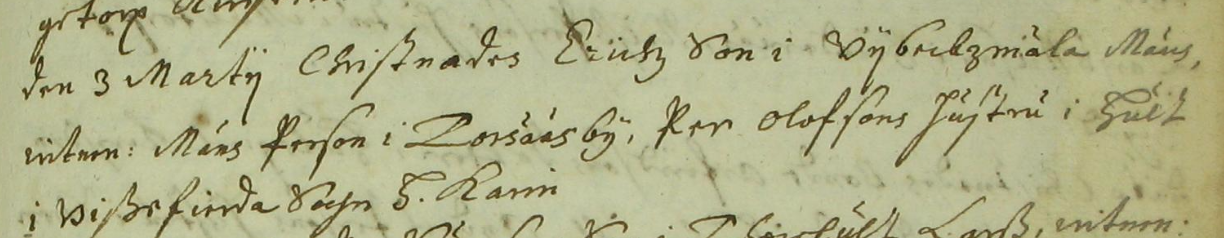 getorp
den 3 Martij Christnades Erichz Son i Vÿbeckzmåla Måns,
vitnen: Måns Person i Torsåås bÿ, Per Olofsons Hustru i Hult
i Vissefierda Sochn H. Karin
Larss, vitnen: